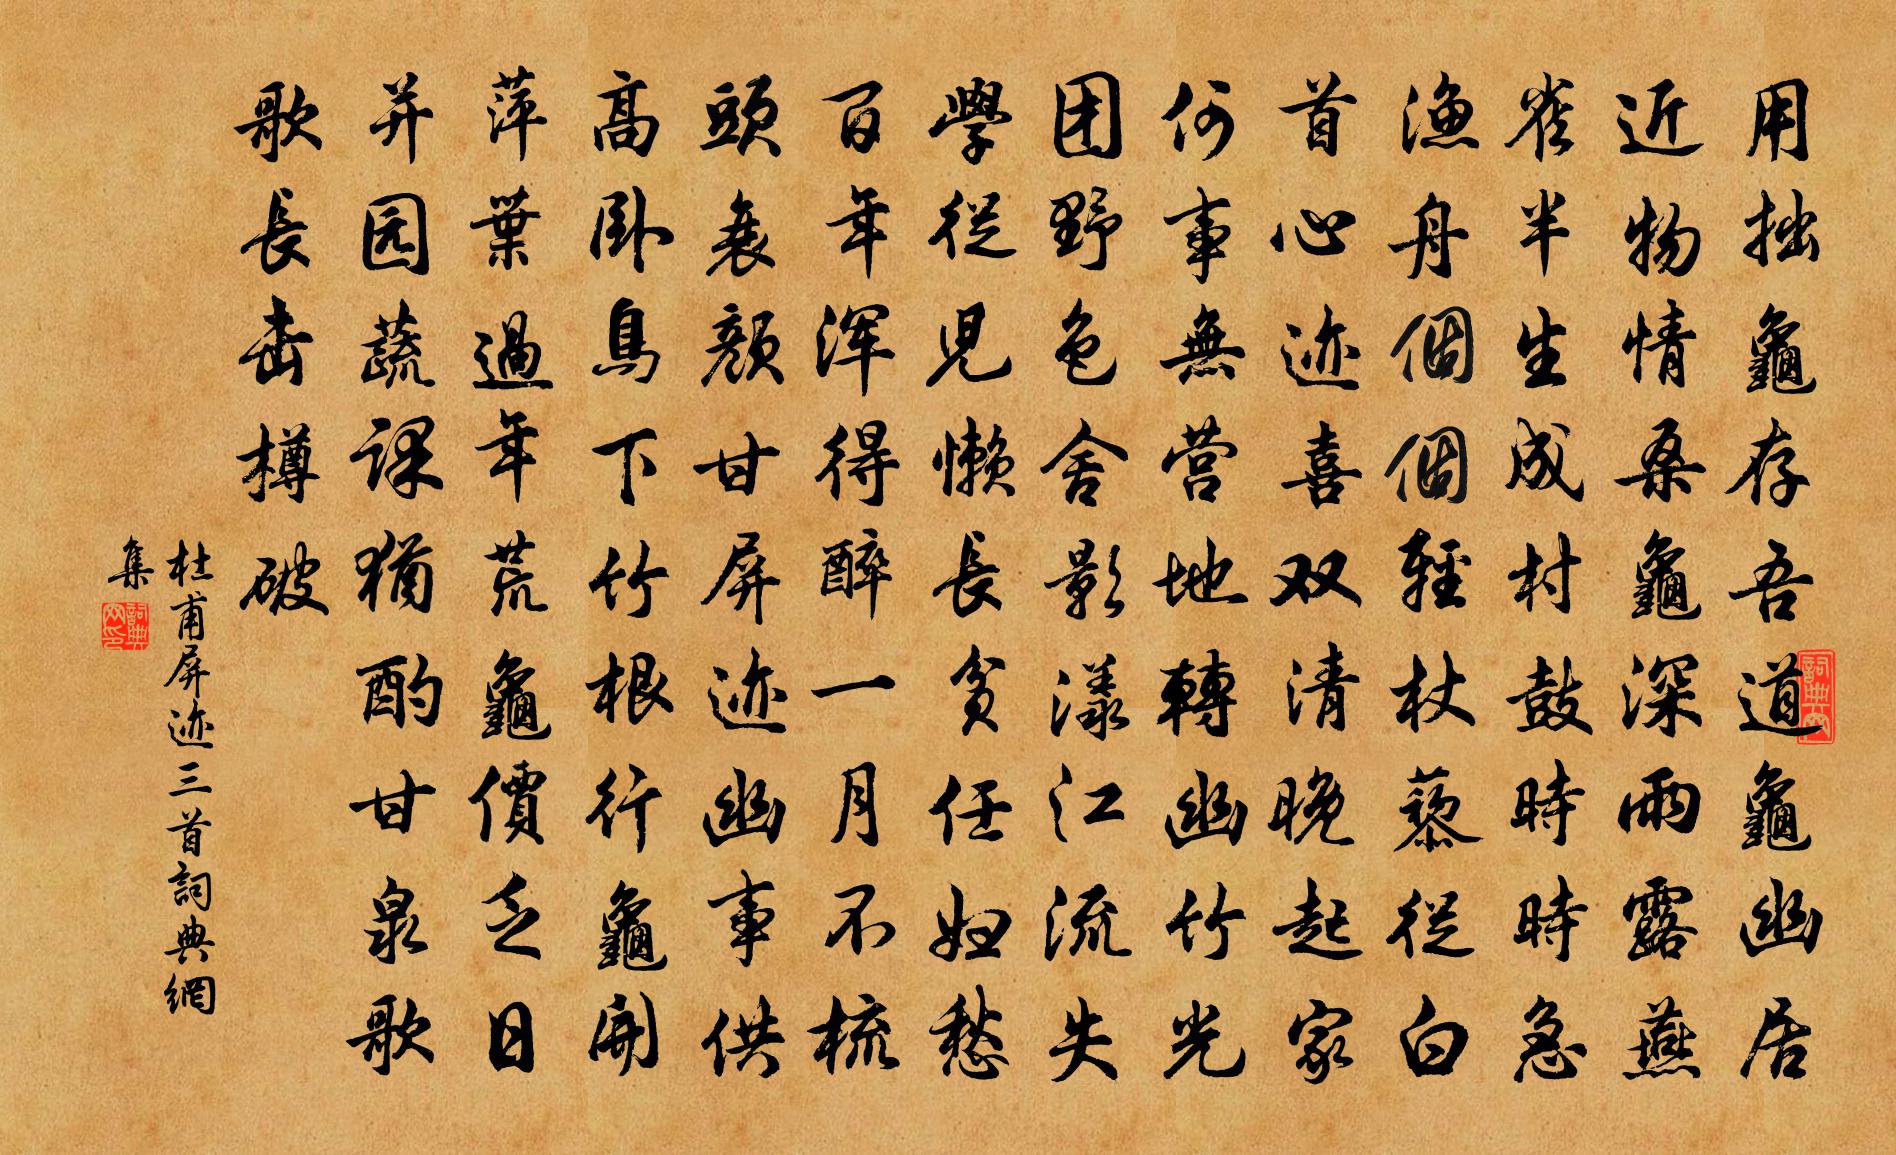 用拙龜存吾道龜幽居
近物情桑龜深雨露燕
雀半生成村鼓時時急
漁舟個個輕杖藜從白
首心迹喜双清晚起家
何事無营地轉幽竹光
团野色舍影漾江流失
學從兒懒長貧任妇愁
百年浑得醉一月不梳
頭衰颜甘屏迹幽事供
高卧鳥下竹根行龜開
萍葉過年荒龜價乏日
并园蔬课猶酌甘泉歌
歌長击樽破
杜甫屏迹三首詞典網
集
詞典网
詞典网印